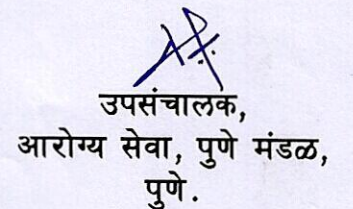 उपसंचालक,
आरोग्य सेवा, पुणे मंडळ,
पुणे.